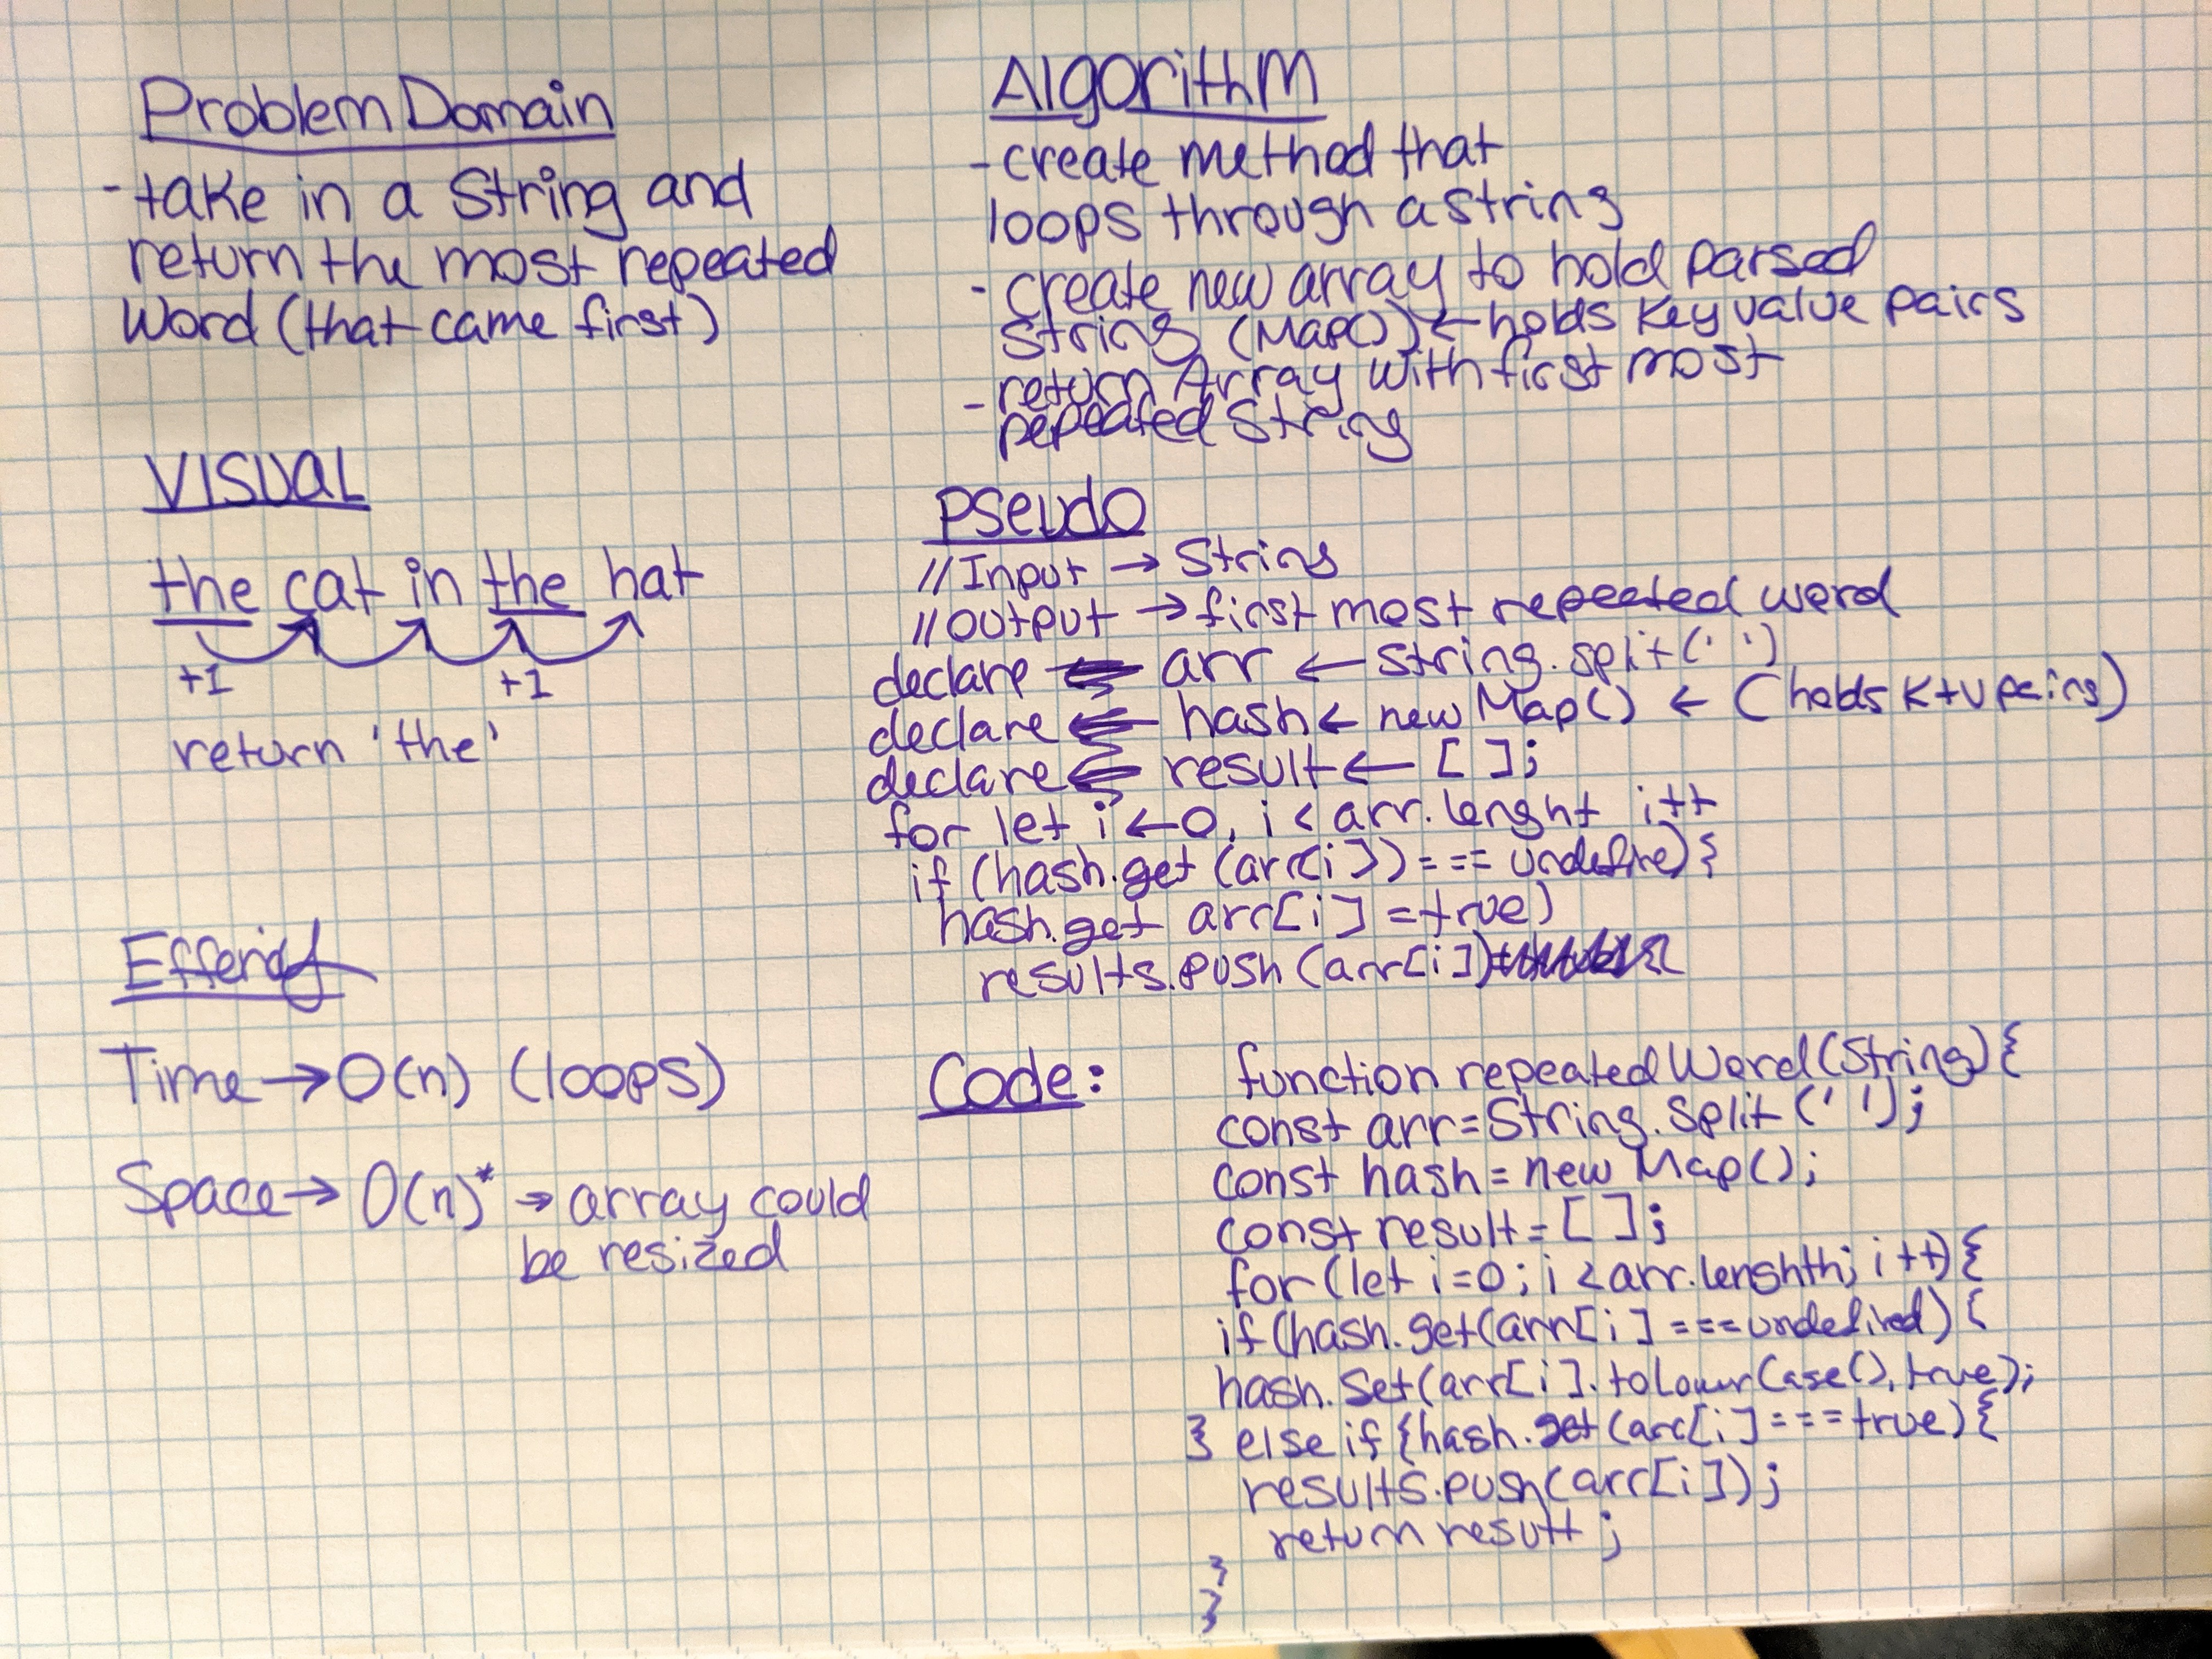 Problem Domain
- take in a String and
return the most repeated
Word (that came first)
VISUAL
the cat in the hat
+1 +1
return 'the'
Efficency
Time → O(n) (loops)
Space → O(n)* → array could
be resized
Algorithm
- create method that
loops through a string
- create new array to hold parsed
string (Map()) ← holds key value pairs
- return Array with first most
repeated String
Pseudo
// Input → String
// output → first most repeated word
declare arr ← string.split(' ')
declare hash ← new Map() ← (holds K+V pairs)
declare result ← [ ];
for let i ← 0, i < arr.lenght i++
if (hash.get (arr[i]) === undefine) {
hash.get arr[i] = true)
results.push (arr[i])
Code: function repeatedWord(String) {
const arr = String.split (' ');
const hash = new Map();
const result = [ ];
for (let i = 0; i < arr.lenghth; i++) {
if (hash.get(arr[i] === undefined) {
hash.set(arr[i].toLowerCase(), true);
} else if {hash.get (arr[i] === true) {
results.push(arr[i]);
return result;
}
}